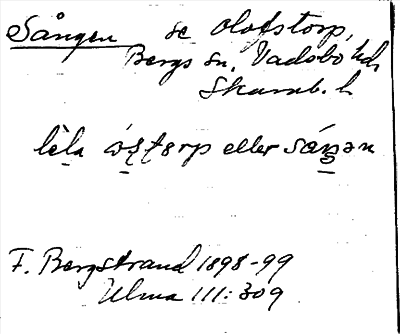 Sången se Olofstorp,
Bergs sn, Vadsbo hd,
Skarab. l.
lèla ós̨t̨ərp eller sáŋən
F. Bergstrand 1898-99
Ulma 111:309